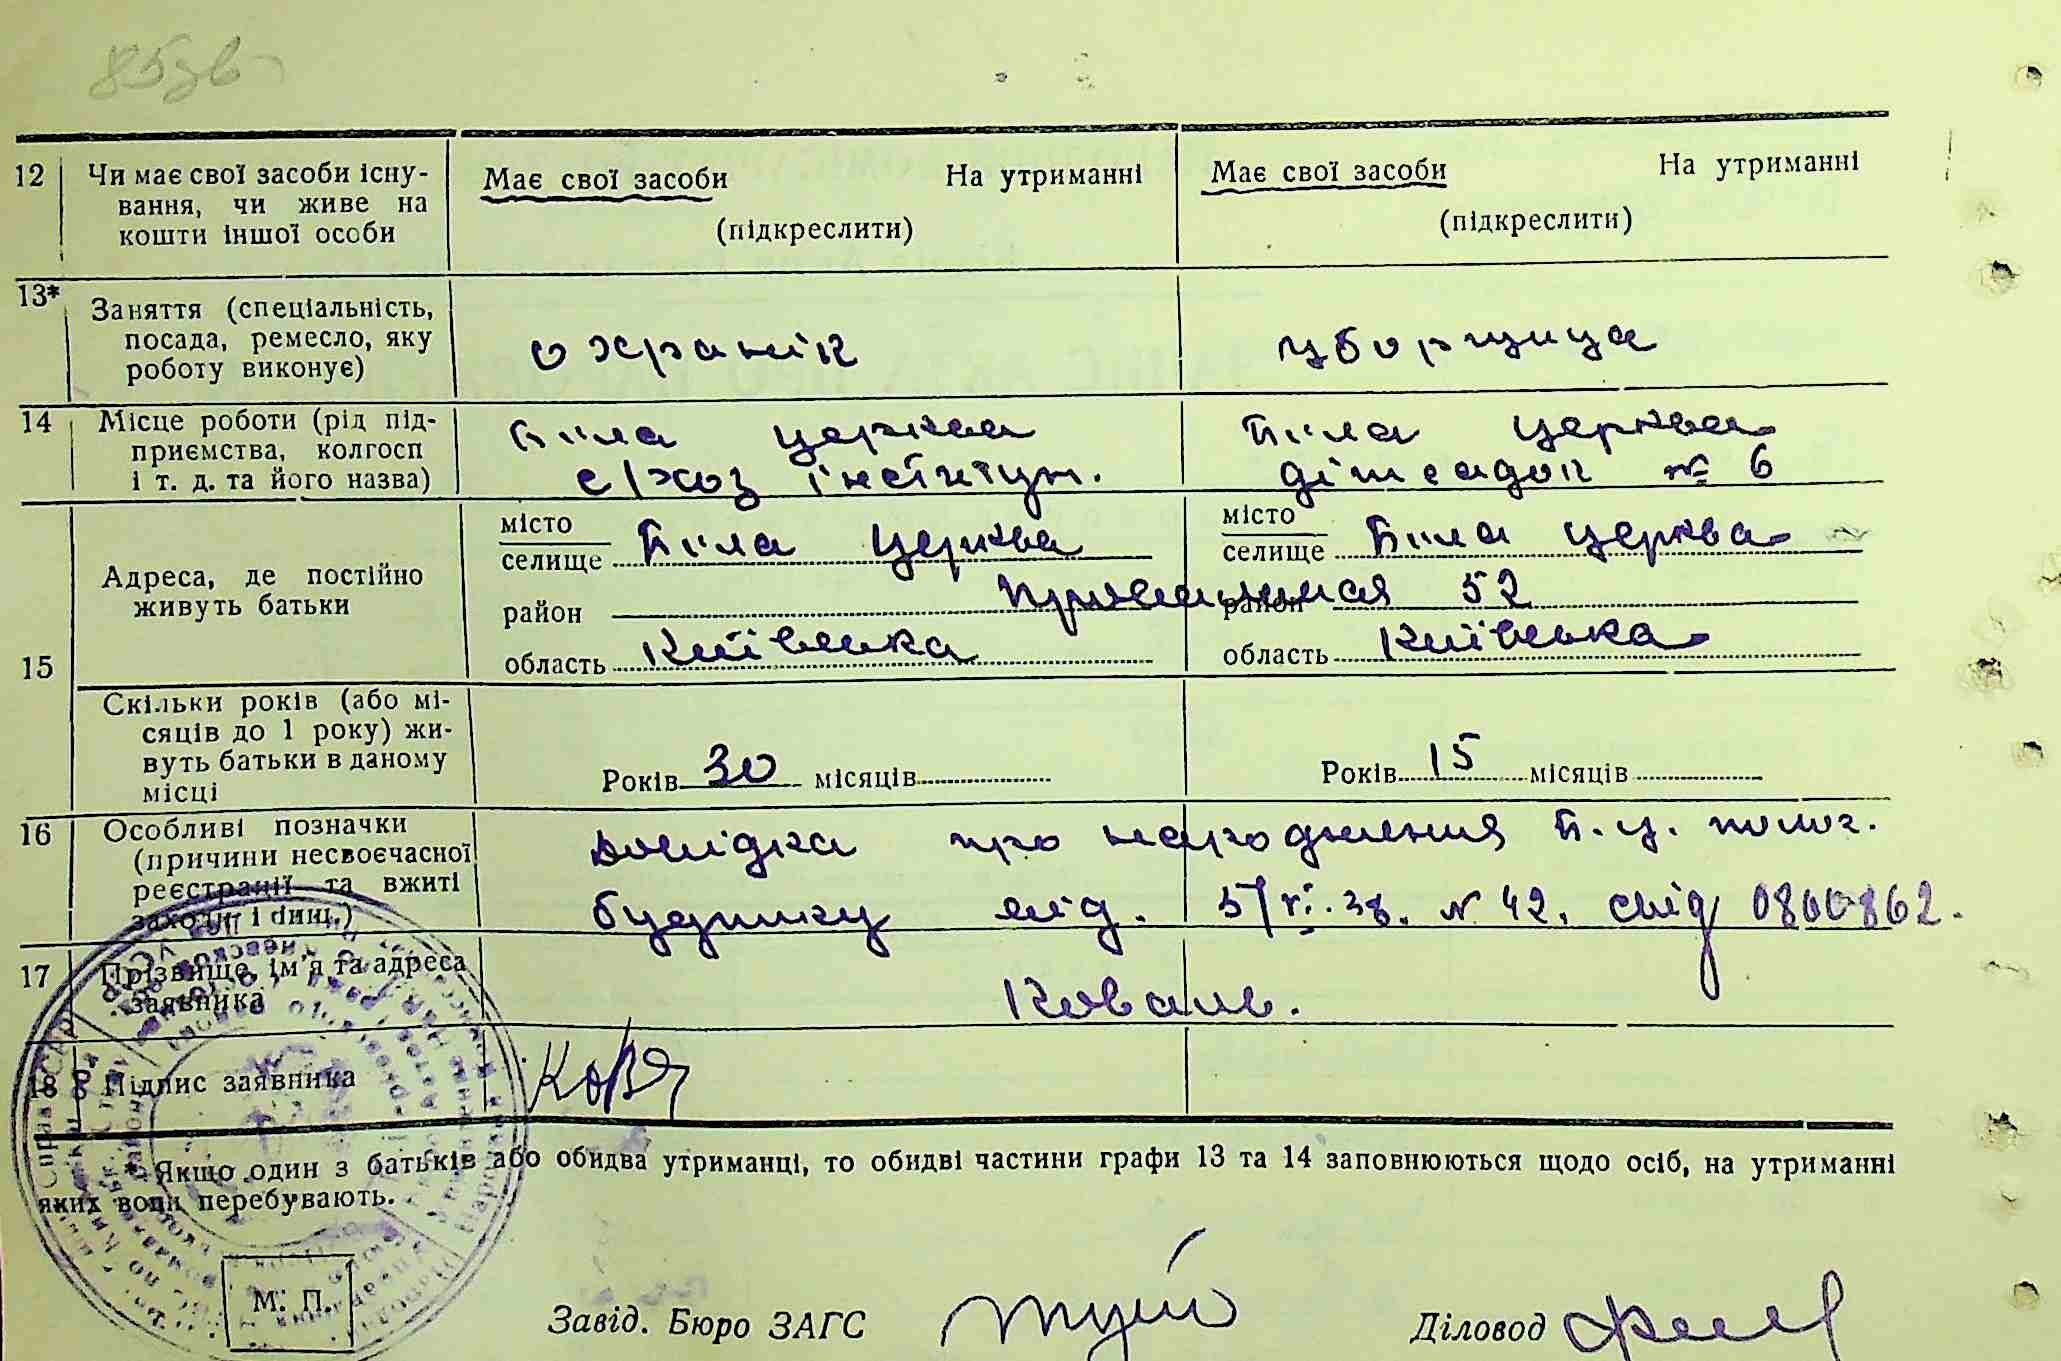 12 Чи має свої засоби існу-
вання, чи живе на
кошти іншої особи
Має свої засоби На утриманні
(підкреслити)
Має свої засоби На утриманні
(підкреслити)
13* Заняття (спеціальність,
посада, ремесло, яку
роботу виконує)
охранік
уборщица
14 Місце роботи (рід під-
приємства, колгосп
і т. д. та його назва)
Біла церква
с/хоз інститут.
Біла церква
дітсадок № 6
15 Адреса, де постійно
живуть батьки
місто
селище Біла Церква
район
область Київська
місто
селище Біла церква
район 52
область Київська
Скільки років (або мі-
сяців до 1 року) жи-
вуть батьки в даному
місці
Років 30 місяців
Років 15 місяців
16 Особливі позначки
(причини несвоєчасної
реєстрації та вжиті
заходи і инш.)
Довідка про народження Б.Ц. полог.
будинку від. 5/VI.38. N 42. свід 0860862.
17 Прізвище, ім'я та адреса
заявника
Коваль.
18 Підпис заявника
* Якщо один з батьків або обидва утриманці, то обидві частини графи 13 та 14 заповнюються щодо осіб, на утриманні
яких вони перебувають.
М. П.
Завід. Бюро ЗАГС
Діловод